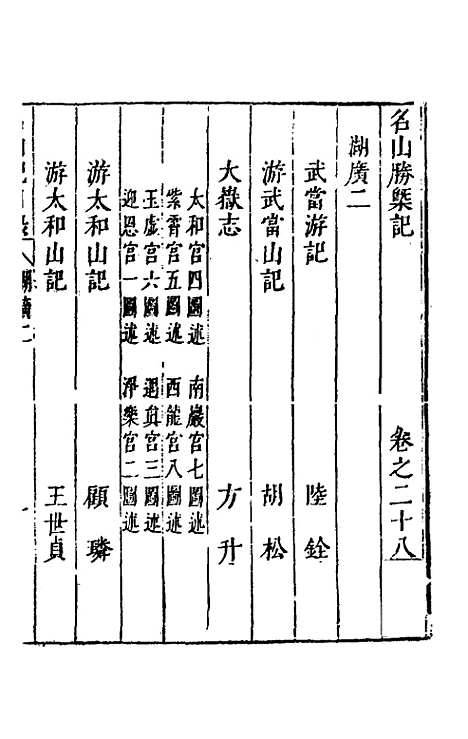 名山勝槩記 卷之二十八
湖廣二
武當游記 陸銓
游武當山記 胡松
大嶽志 方升
太和宮四圖述 南巖宮七圖述
紫霄宮五圖述 西龍宮八圖述
玉虛宮六圖述 遇真宮三圖述
迎恩宮一圖述 淨樂宮二圖述
游太和山記 顧璘
游太和山記 王世貞
湖廣二